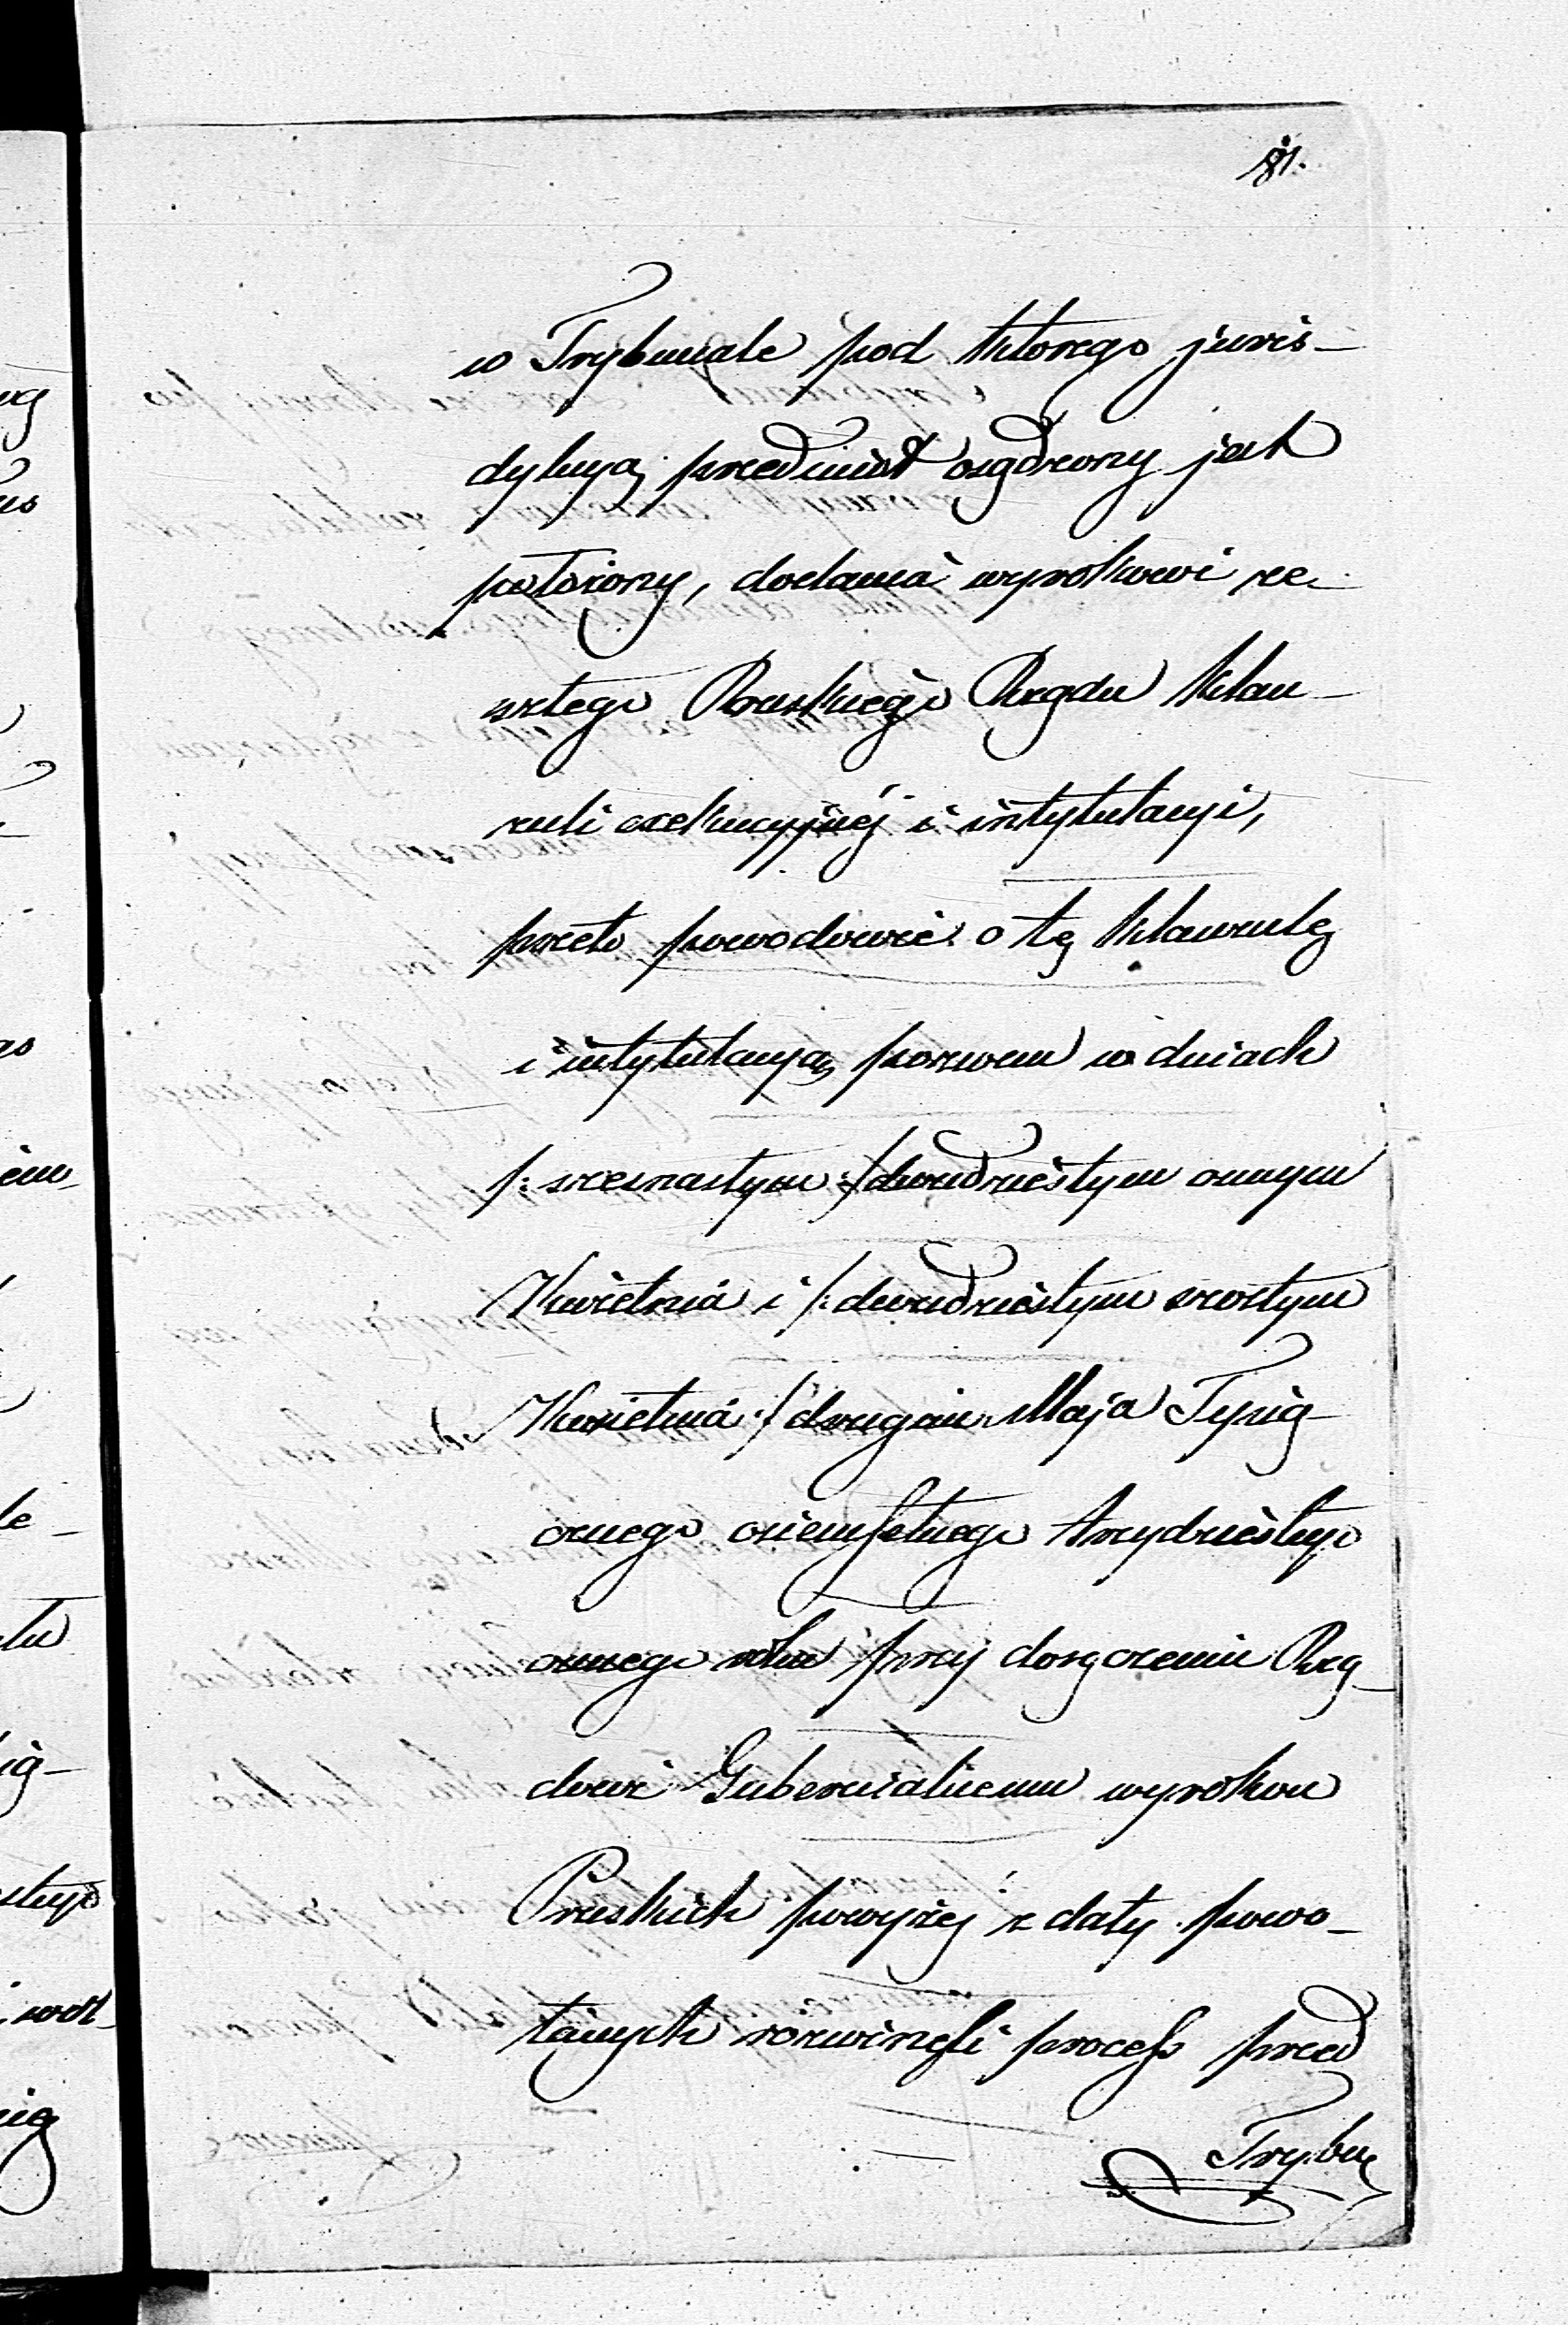 w Trybunale pod którego juris-
dykcyą przedmiot osądzony jest
położony, dodania wyrokowi ze-
szłego Pruskiego Rządu klau-
zuli exekucyjnéj i intytulacyi,
przeto powodowie o tę klauzulę
i intytulacyą, pozwem w dniach
/: szesnastym :/ dwudziestym osmym
Kwietnia i /: dwudziestym szóstym
Kwietnia :/ drugim Maja Tysią-
cznego osiemsetnego trzydziestego
osmego roku przy doręczeniu Rzą-
dowi Gubernialnemu wyroków
Pruskich powyżej z daty powo-
łanych rozwinęli process przed
Trybu